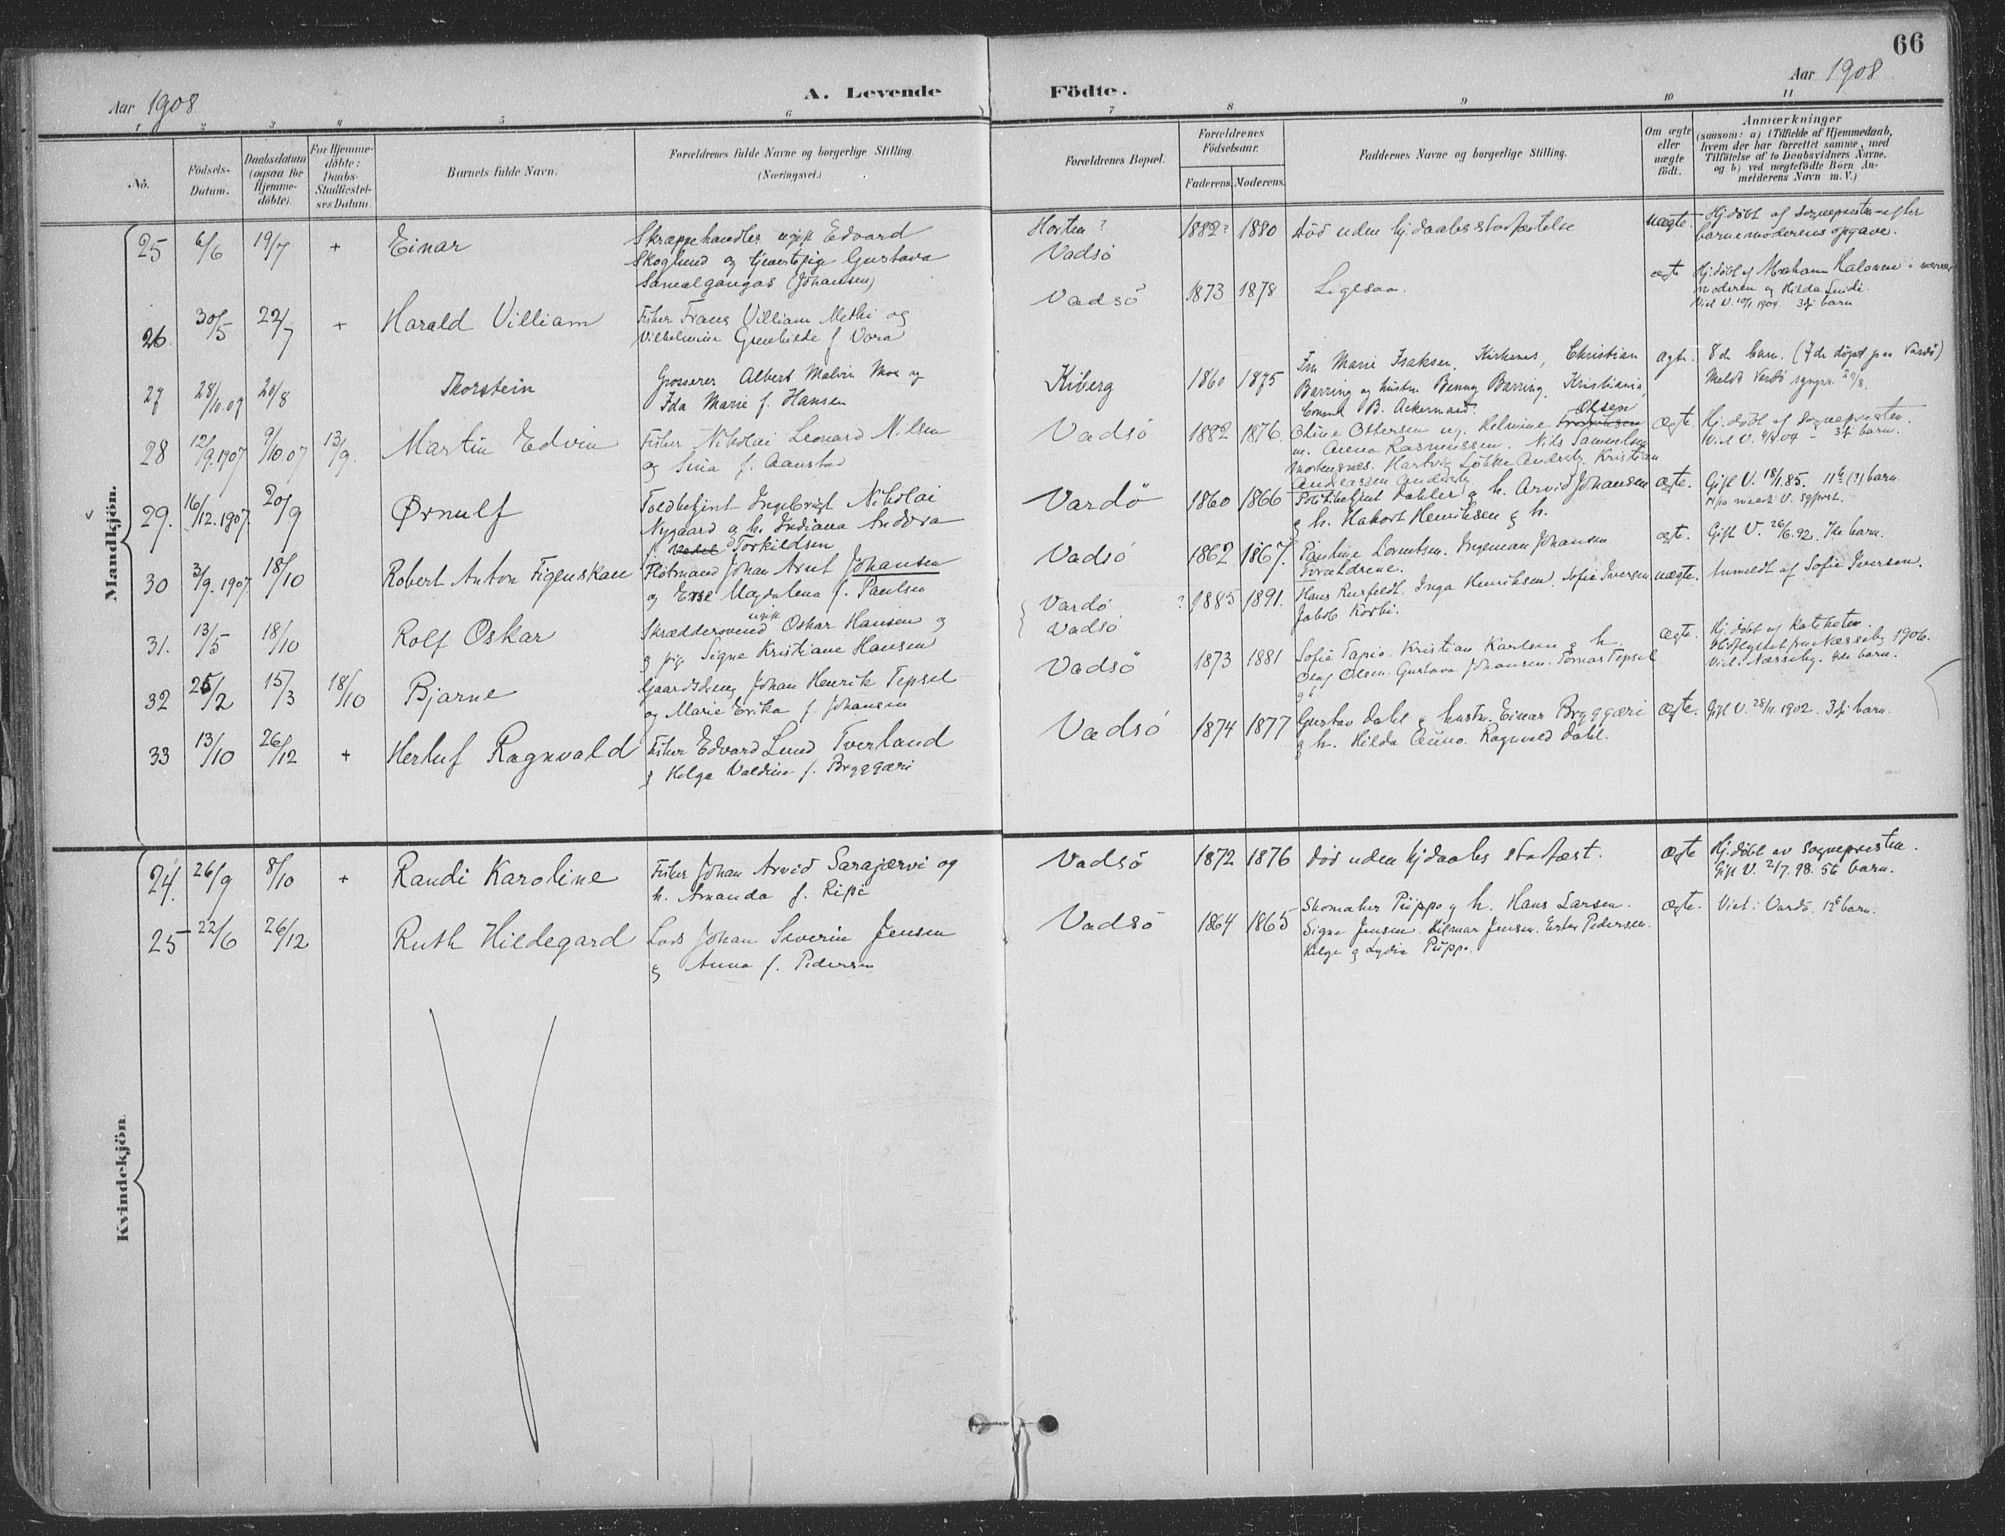 66
Aar 1908
A. Levende Födte.
Aar 1908
1 2 3 4 5 6 7 8 9 10 11
No.
Födsels-Datum.
Daabsdatum (ogsaa for Hjemmedöbte).
For Hjemmedöbte: Daabs-Stadfæstelses Datum.
Barnets fulde Navn.
Forældrenes fulde Navne og borgerlige Stilling.
(Næringsvei.)
Forældrenes Bopæl.
Forældrenes Födselsaar.
Faderens. Moderens.
Faddernes Navne og borgerlige Stilling.
Om ægte eller uægte födt.
Anmærkninger
(saasom: a) i Tilfælde af Hjemmedaab, hvem der har forrettet samme, med Tilföielse af to Daabsvidners Navne, og b) ved uægtefödte Börn Anmelderens Navn m. V.)
Mandkjön.
25 6/6 19/7 + Einar
Skræppehandler ugift Edvard
Skoglund og tjenestepige Gustava
(Johansen)
Horten ?
Vadsö
1882? 1880 Död uden hj.daabs stadfæstelse
uægte. Hj.döbt af sognepresten efter
barnemoderens opgave.
26. 30/5 22/7 + Harald Villiam
Fisker Frans Villiam Methi og
Vilhelmine f. Vara
Vadsö 1873 1878 Ligesaa.
ægte Hj.döbt af Abraham Halonen i nærvær
moderen og Hilda
Viet V. 1904 3dj barn
27 28/10.07 20/8 Thorstein
Grosserer Albert Malvin Moe og
Ida Marie f. Hansen
Kiberg 1860 1875
Fru Marie Isaksen, Kirkenes, Christian
Barring og hustru Benny Barring, Kristiania,
B. Ackermand.
ægte. 8de barn. (7de döpt paa Vardö)
Meldt Vardö sgnpr. 20/8.
28 12/9.1907 9/10 07 13/9. Martin Edvin
Fisker Nikolai Leonard Nilsen
og Sina f. Aanstad
Vadsö 1882 1876.
Oline Ottersen ug. Helmine Olsen
m. Anna Rasmussen. Nils Samuelsen
Mortensnæs. Hartvig Lökke Andersby. Kristian
Andreassen Andersby
ægte. Hj.döbt af Sognepresten.
Viet V. 04 - 3dj barn.
29. 16/12.1907. 20/9 Ørnulf
Toldbetjent Ingebrigt Nikolai
Nygaard og h. Indiana Andora
f. Torkildsen
Vardö 1860 1866
Politibetjent Dahler og h. Arvid Johansen
og h. Hakort Henriksen og h.
ægte. Gift V. 18/1.85. 11te (?) barn.
meldt V. sgprst.
30 3/9.1907 18/10 Robert Anton Figenskau
Flötmand Johan Arnt Johansen
og Magdalena f. Paulsen
Vadsö 1862 1867.
Pauline Lorentsen. Ingeman Johansen
Forældrene.
ægte. Gift V. 26/6.92. 7de barn.
31. 13/5 18/10 Rolf Oskar
Skræddersvend ugift Oskar Hansen og
pig. Signe Kristiane Hansen
Vardö
Vadsö
? 1885 1891.
Hans Rusfeldt. Inga Henriksen. Sofie Iversen
Jakob Korbi.
uægte. Anmeldt af Sofie Iversen.
32 25/2 15/3 18/10 Bjarne
Gaardsdreng Johan Henrik Tepsel
og Marie Erika f. Johansen
Vadsö 1873 1881
Sofie Tapio. Kristian Karlsen og h.
Olaf Olsen. Gustava Johansen. Tomas Tepsel
ægte. Hj.döbt af Katheten.
Indflyttet fra Næsseby 1906.
Viet i Næsseby. 4de barn.
33 13/10 26/12 + Herluf Ragnvald
Fisker Edvard Lund Tverland
og Helga Valdine f. Bryggæri
Vadsö 1874 1877
Gustav Dahl og hustru. Einar Bryggæri
og h. Hilda Auno. Ragnvald Dahl.
ægte. Gift V. 28/11.1902. 3dj barn.
Kvindekjön.
24. 26/9 8/10 + Randi Karoline
Fisker Johan Arvid Sarajærvi og
h. Amanda f. Ripi
Vadsö 1872 1876 Död uden hj.daabs stadfæst.
ægte Hj.döbt av sognepresten.
Gift V. 2/7.98. 5te barn.
25 22/6 26/12 Ruth Hildegard
Lods Johan Severin Jensen
og Anna f. Pedersen
Vadsö 1864 1865
Skomaker Piippo og h. Hans Larsen.
Signe Jensen. Hilmar Jensen. Ester Pedersen.
Helge og Lydia Piippo.
ægte. Viet i Vardö. 12te barn.